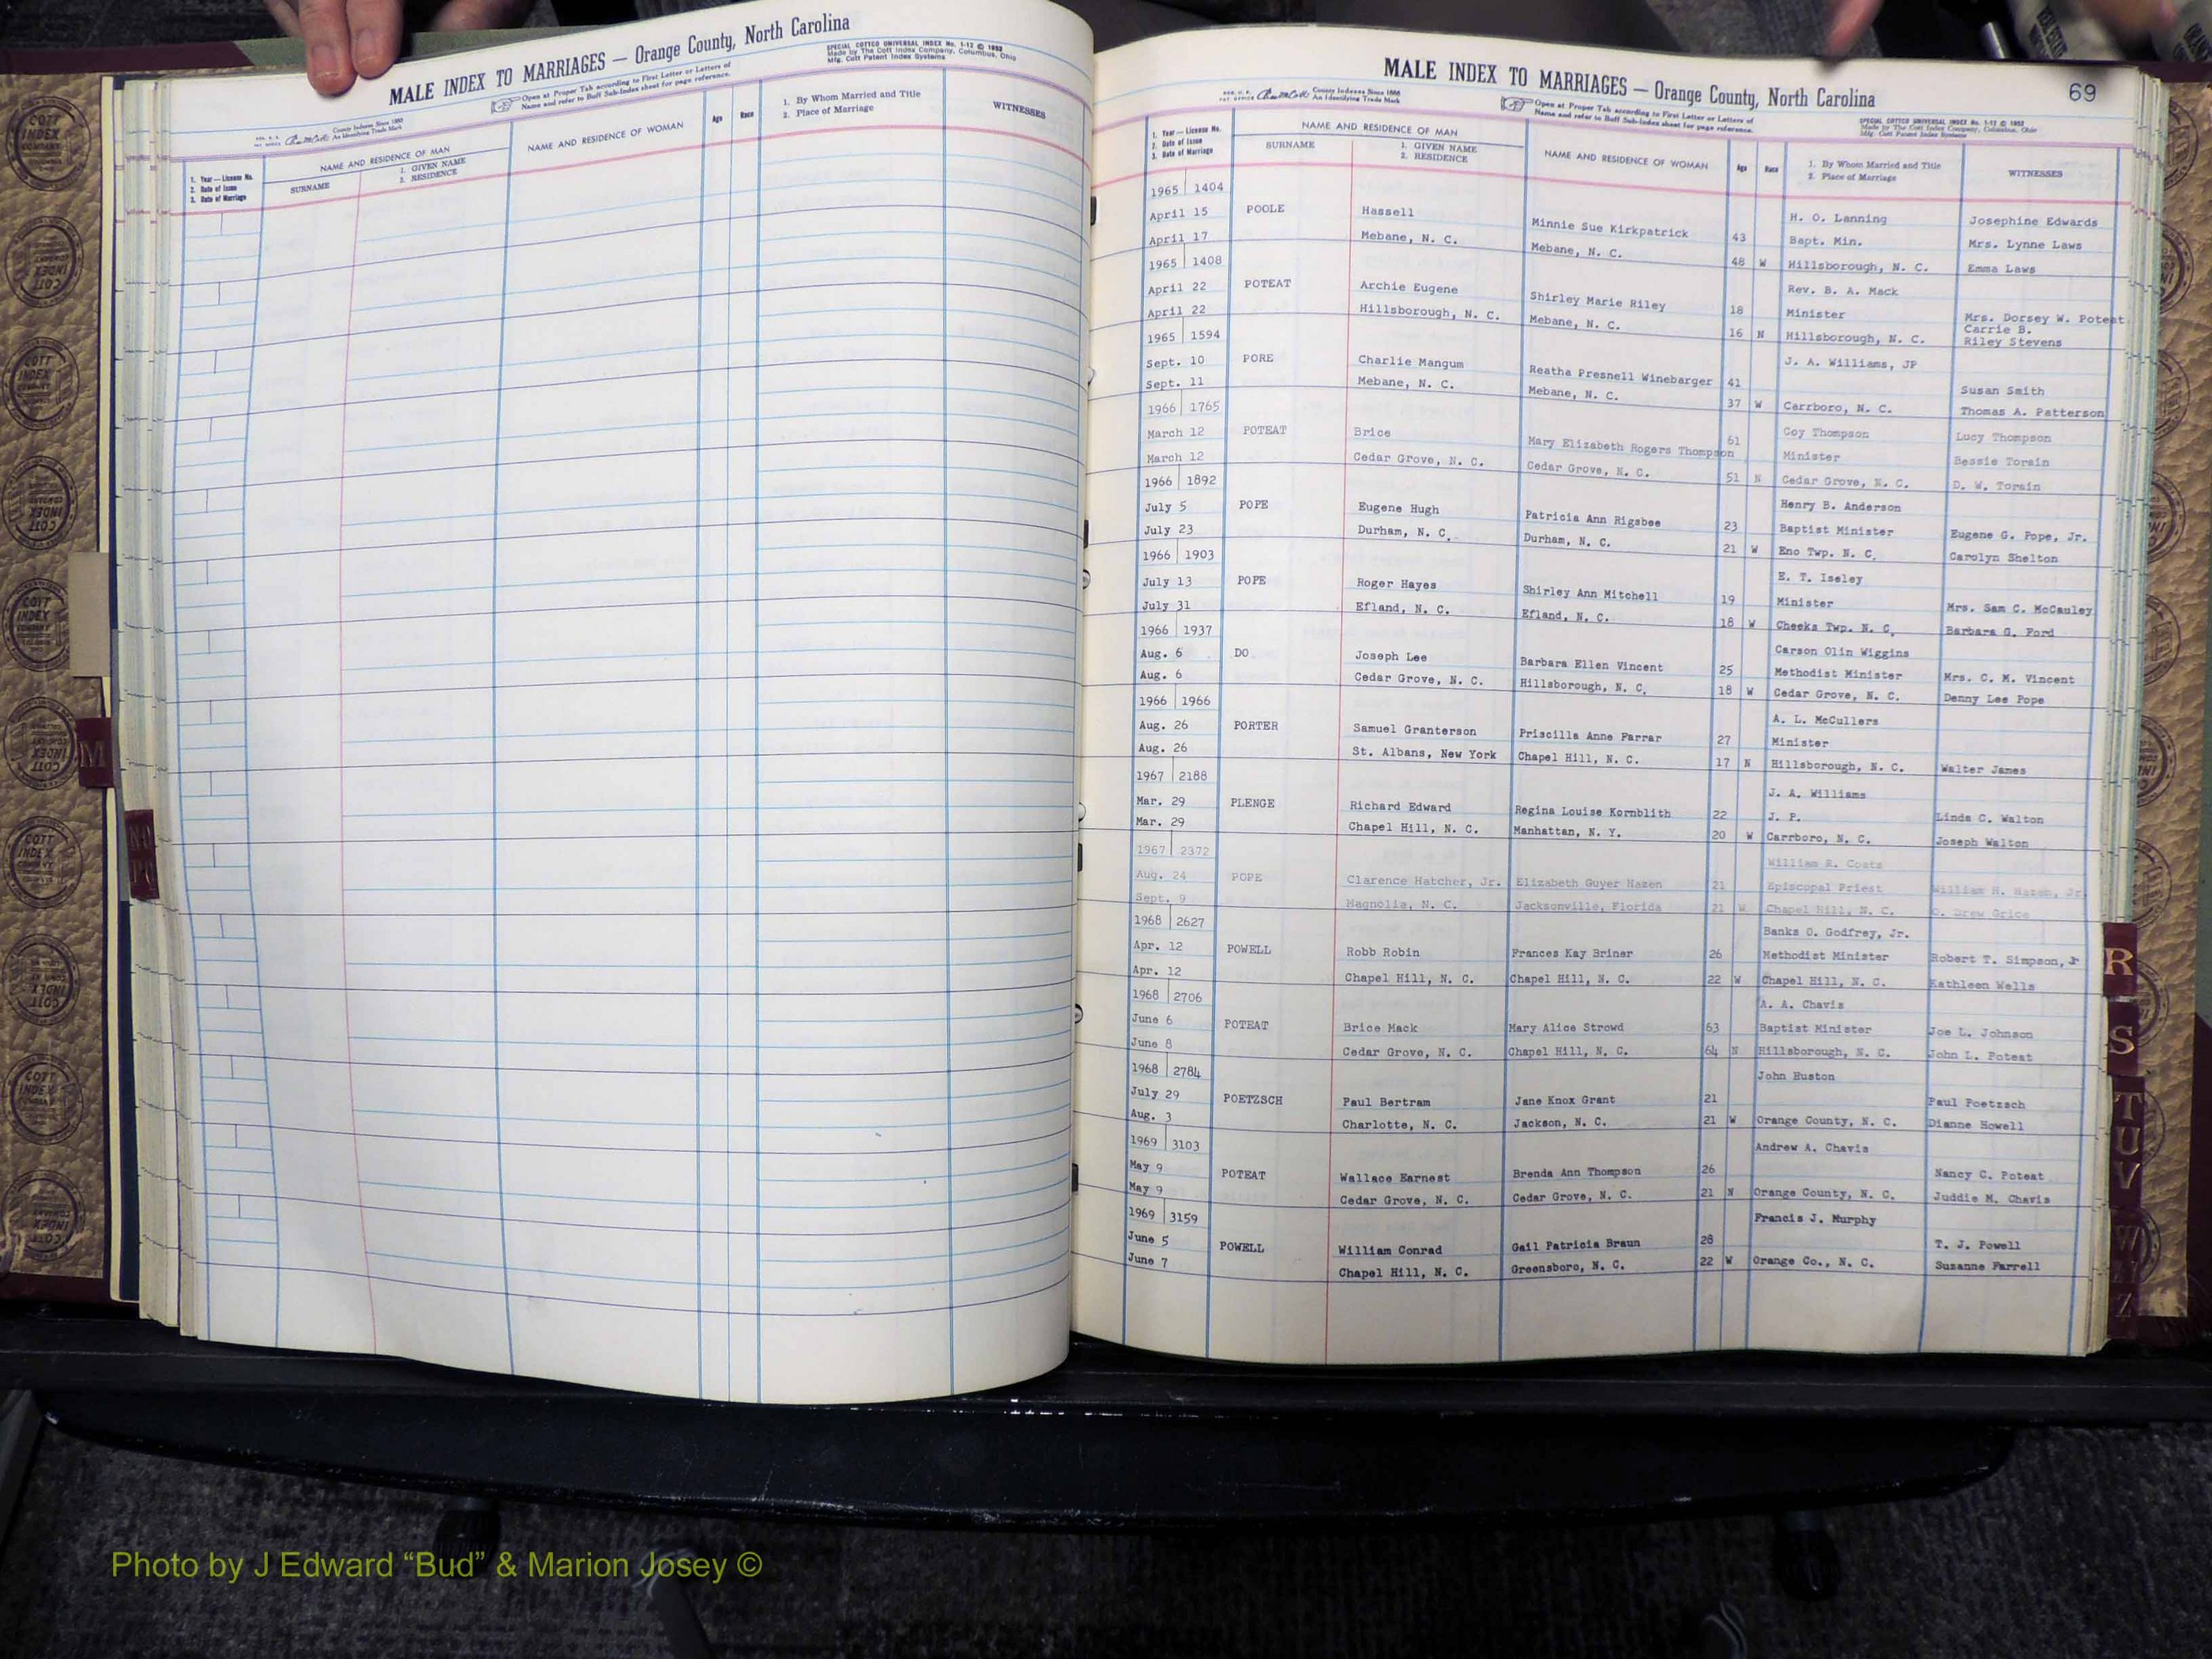 MALE INDEX TO MARRIAGES — Orange County, North Carolina
SPECIAL COTTCO UNIVERSAL INDEX No. 1-12 © 1952
Made by The Cott Index Company, Columbus, Ohio
Mfg. Cott Patent Index Systems
Open at Proper Tab according to First Letter or Letters of
Name and refer to Buff Sub-Index sheet for page reference.
County Indexes Since 1888
An Identifying Trade Mark
1. Year — License No.
2. Date of Issue
3. Date of Marriage
NAME AND RESIDENCE OF MAN
SURNAME
1. GIVEN NAME
2. RESIDENCE
NAME AND RESIDENCE OF WOMAN
Age
Race
1. By Whom Married and Title
2. Place of Marriage
WITNESSES
MALE INDEX TO MARRIAGES — Orange County, North Carolina 69
County Indexes Since 1888
An Identifying Trade Mark
Open at Proper Tab according to First Letter or Letters of
Name and refer to Buff Sub-Index sheet for page reference.
SPECIAL COTTCO UNIVERSAL INDEX No. 1-12 © 1952
Made by The Cott Index Company, Columbus, Ohio
Mfg. Cott Patent Index Systems
1. Year — License No.
2. Date of Issue
3. Date of Marriage
NAME AND RESIDENCE OF MAN
SURNAME
1. GIVEN NAME
2. RESIDENCE
NAME AND RESIDENCE OF WOMAN
Age
Race
1. By Whom Married and Title
2. Place of Marriage
WITNESSES
1965 1404 H. O. Lanning Josephine Edwards
April 15 POOLE Hassell Minnie Sue Kirkpatrick 43 Bapt. Min. Mrs. Lynne Laws
April 17 Mebane, N. C. Mebane, N. C. 48 W Hillsborough, N. C. Emma Laws
1965 1408 Rev. B. A. Mack
April 22 POTEAT Archie Eugene Shirley Marie Riley 18 Minister Mrs. Dorsey W. Poteat
Carrie B.
April 22 Hillsborough, N. C. Mebane, N. C. 16 N Hillsborough, N. C. Riley Stevens
1965 1594 J. A. Williams, JP
Sept. 10 PORE Charlie Mangum Reatha Presnell Winebarger 41 Susan Smith
Sept. 11 Mebane, N. C. Mebane, N. C. 37 W Carrboro, N. C. Thomas A. Patterson
1966 1765 Coy Thompson Lucy Thompson
March 12 POTEAT Brice Mary Elizabeth Rogers Thompson 61 Minister Bessie Torain
March 12 Cedar Grove, N. C. Cedar Grove, N. C. 51 N Cedar Grove, N. C. D. W. Torain
1966 1892 Henry B. Anderson
July 5 POPE Eugene Hugh Patricia Ann Rigsbee 23 Baptist Minister Eugene G. Pope, Jr.
July 23 Durham, N. C. Durham, N. C. 21 W Eno Twp. N. C. Carolyn Shelton
1966 1903 E. T. Iseley
July 13 POPE Roger Hayes Shirley Ann Mitchell 19 Minister Mrs. Sam C. McCauley
July 31 Efland, N. C. Efland, N. C. 18 W Cheeks Twp. N. C. Barbara G. Ford
1966 1937 Carson Olin Wiggins
Aug. 6 DO Joseph Lee Barbara Ellen Vincent 25 Methodist Minister Mrs. C. M. Vincent
Aug. 6 Cedar Grove, N. C. Hillsborough, N. C. 18 W Cedar Grove, N. C. Denny Lee Pope
1966 1966 A. L. McCullers
Aug. 26 PORTER Samuel Granterson Priscilla Anne Farrar 27 Minister
Aug. 26 St. Albans, New York Chapel Hill, N. C. 17 N Hillsborough, N. C. Walter James
1967 2188 J. A. Williams
Mar. 29 PLENGE Richard Edward Regina Louise Kornblith 22 J. P. Linda C. Walton
Mar. 29 Chapel Hill, N. C. Manhattan, N. Y. 20 W Carrboro, N. C. Joseph Walton
1967 2372 William R. Coats
Aug. 24 POPE Clarence Hatcher, Jr. Elizabeth Guyer Hazen 21 Episcopal Priest William H. Hazen, Jr.
Sept. 9 Magnolia, N. C. Jacksonville, Florida 21 W Chapel Hill, N. C. Drew Grice
1968 2627 Banks O. Godfrey, Jr.
Apr. 12 POWELL Robb Robin Frances Kay Briner 26 Methodist Minister Robert T. Simpson, Jr
Apr. 12 Chapel Hill, N. C. Chapel Hill, N. C. 22 W Chapel Hill, N. C. Kathleen Wells
1968 2706 A. A. Chavis
June 6 POTEAT Brice Mack Mary Alice Strowd 63 Baptist Minister Joe L. Johnson
June 8 Cedar Grove, N. C. Chapel Hill, N. C. 64 N Hillsborough, N. C. John L. Poteat
1968 2784 John Huston
July 29 POETZSCH Paul Bertram Jane Knox Grant 21 Paul Poetzsch
Aug. 3 Charlotte, N. C. Jackson, N. C. 21 W Orange County, N. C. Dianne Howell
1969 3103 Andrew A. Chavis
May 9 POTEAT Wallace Earnest Brenda Ann Thompson 26 Nancy C. Poteat
May 9 Cedar Grove, N. C. Cedar Grove, N. C. 21 N Orange County, N. C. Juddie M. Chavis
1969 3159 Francis J. Murphy
June 5 POWELL William Conrad Gail Patricia Braun 28 T. J. Powell
June 7 Chapel Hill, N. C. Greensboro, N. C. 22 W Orange Co., N. C. Suzanne Farrell
M
R
S
T
U
V
W
Z
COTT INDEX COMPANY
Photo by J Edward “Bud” & Marion Josey ©